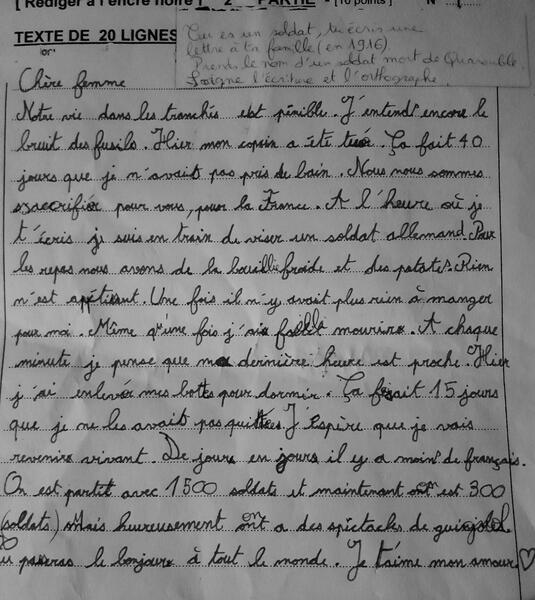 [ Rédiger à l'encre noire ] 2 PARTIE - [10 points ] N
TEXTE DE 20 LIGNES
Tu es un soldat, tu écris une
lettre à ta famille (en 1916)
Prends le nom d'un soldat mort de Quarouble.
Soigne l'écriture et l'orthographe.
Chère femme
Notre vie dans les tranchés est pénible. J'entends encore le
bruit des fusils. Hier mon copain a été tué. Ça fait 40
jours que je n'avait pas pris de bain. Nous nous sommes
sacrifier pour vous, pour la France. A l'heure où je
t'écris je suis en train de viser un soldat allemand. Pour
les repas nous avons de la bouillie froide et des patates. Rien
n'est apétissant. Une fois il n'y avait plus rien à manger
pour moi. Même qu'une fois j'ai faillit mourire. A chaque
minute je pense que ma dernière heure est proche. Hier
j'ai enlever mes bottes pour dormir. Ça faisait 15 jours
que je ne les avait pas quittées. J'espère que je vais
revenire vivant. De jours en jours il y a moins de français.
On est partit avec 1500 soldats et maintenant on est 300
(soldats.) Mais heureusement on a des spectacles de
20
tu passeras le bonjours à tout le monde. Je t'aime mon amour ♡